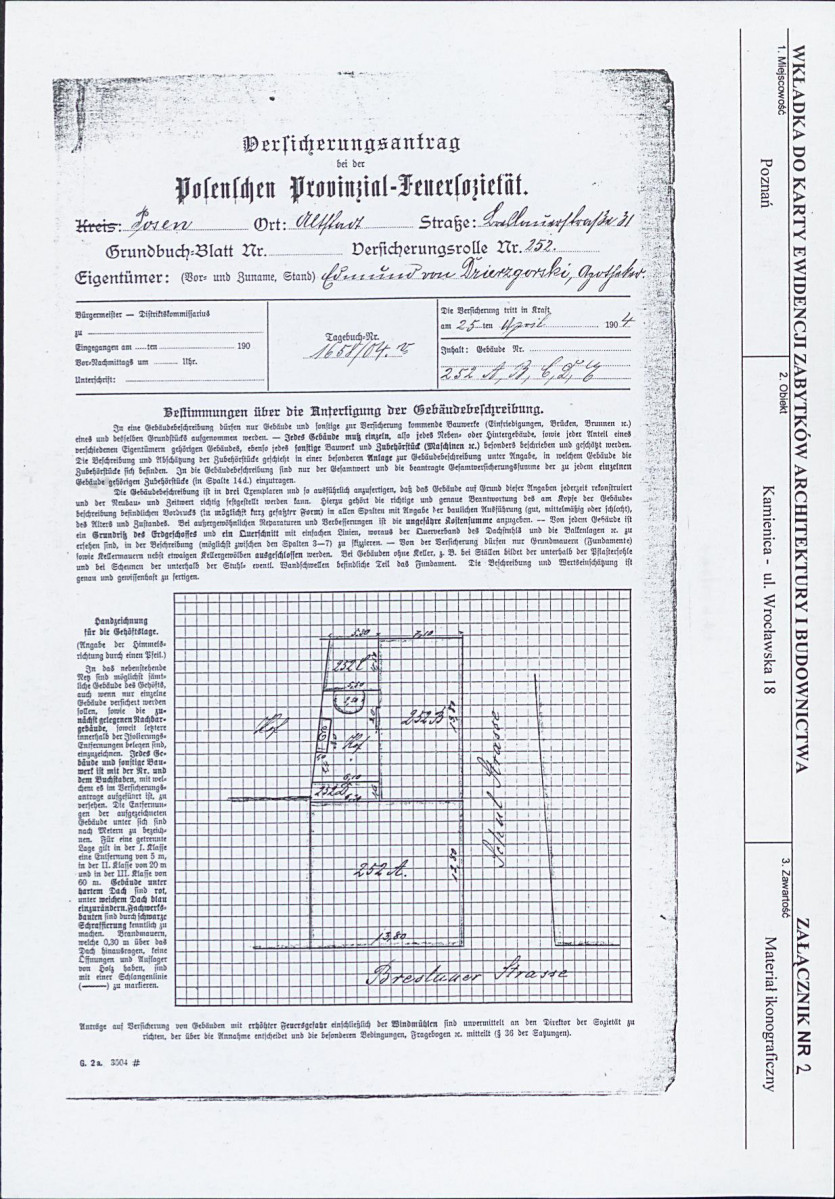 Versicherungsantrag
bei der
Posenschen Provinzial-Feuersozietät.
Kreis: Posen Ort: Altstadt Straße: Breslauerstraße 31
Grundbuch-Blatt Nr. Versicherungsrolle Nr. 252.
Eigentümer: (Vor- und Zuname, Stand) Edmund von Dzierzgorski, Apotheker
Bürgermeister — Distriktskommissarius
zu
Eingegangen am ten 190
Vor-Nachmittags um Uhr.
Unterschrift:
Tagebuch-Nr.
1658/04.
Die Versicherung tritt in Kraft
am 25 ten April 1904
Inhalt: Gebäude Nr.
252 A, B, C, D,
Bestimmungen über die Anfertigung der Gebäudebeschreibung.
In eine Gebäudebeschreibung dürfen nur Gebäude und sonstige zur Versicherung kommende Bauwerke (Einfriedigungen, Brücken, Brunnen ꝛc.)
eines und desselben Grundstücks aufgenommen werden. — Jedes Gebäude muß einzeln, also jedes Neben- oder Hintergebäude, sowie jeder Anteil eines
verschiedenen Eigentümern gehörigen Gebäudes, ebenso jedes sonstige Bauwerk und Zubehörstück (Maschinen ꝛc.) besonders beschrieben und geschätzt werden.
Die Beschreibung und Abschätzung der Zubehörstücke geschieht in einer besonderen Anlage zur Gebäudebeschreibung unter Angabe, in welchem Gebäude die
Zubehörstücke sich befinden. In die Gebäudebeschreibung sind nur der Gesamtwert und die beantragte Gesamtversicherungssumme der zu jedem einzelnen
Gebäude gehörigen Zubehörstücke (in Spalte 14d.) einzutragen.
Die Gebäudebeschreibung ist in drei Exemplaren und so ausführlich anzufertigen, daß das Gebäude auf Grund dieser Angaben jederzeit rekonstruiert
und der Neubau- und Zeitwert richtig festgestellt werden kann. Hierzu gehört die richtige und genaue Beantwortung des am Kopfe der Gebäude-
beschreibung befindlichen Vordrucks (in möglichst kurz gefaßter Form) in allen Spalten mit Angabe der baulichen Ausführung (gut, mittelmäßig oder schlecht),
des Alters und Zustandes. Bei außergewöhnlichen Reparaturen und Verbesserungen ist die ungefähre Kostensumme anzugeben. — Von jedem Gebäude ist
ein Grundriß des Erdgeschosses und ein Querschnitt mit einfachen Linien, woraus der Querverband des Dachstuhls und die Balkenlagen ꝛc. zu
ersehen sind, in der Beschreibung (möglichst zwischen den Spalten 3—7) zu skizzieren. — Von der Versicherung dürfen nur Grundmauern (Fundamente)
sowie Kellermauern nebst etwaigen Kellergewölben ausgeschlossen werden. Bei Gebäuden ohne Keller, z. B. bei Ställen bildet der unterhalb der Pflastersohle
und bei Scheunen der unterhalb der Stuhl- eventl. Wandschwellen befindliche Teil das Fundament. Die Beschreibung und Wertseinschätzung ist
genau und gewissenhaft zu fertigen.
Handzeichnung
für die Gehöftslage.
(Angabe der Himmels-
richtung durch einen Pfeil.)
In das nebenstehende
Netz sind möglichst sämt-
liche Gebäude des Gehöfts,
auch wenn nur einzelne
Gebäude versichert werden
sollen, sowie die zu-
nächst gelegenen Nachbar-
gebäude, soweit letztere
innerhalb der Isolierungs-
Entfernungen belegen sind,
einzuzeichnen. Jedes Ge-
bäude und sonstige Bau-
werk ist mit der Nr. und
dem Buchstaben, mit wel-
chem es im Versicherungs-
antrage aufgeführt ist, zu
versehen. Die Entfernun-
gen der aufgezeichneten
Gebäude unter sich sind
nach Metern zu bezeich-
nen. Für eine getrennte
Lage gilt in der I. Klasse
eine Entfernung von 5 m,
in der II. Klasse von 20 m
und in der III. Klasse von
60 m. Gebäude unter
hartem Dach sind rot,
unter weichem Dach blau
einzurändern. Fachwerks-
bauten sind durch schwarze
Schraffierung kenntlich zu
machen. Brandmauern,
welche 0,30 m über das
Dach hinausragen, keine
Öffnungen und Auflager
von Holz haben, sind
mit einer Schlangenlinie
(———) zu markieren.
5,30 7,10
252 C
5,50
252 B
Hof
Hof
6,10
252 D
252 A.
13,80
Schul Strasse
Breslauer Strasse
Anträge auf Versicherung von Gebäuden mit erhöhter Feuersgefahr einschließlich der Windmühlen sind unvermittelt an den Direktor der Sozietät zu
richten, der über die Annahme entscheidet und die besonderen Bedingungen, Fragebogen ꝛc. mitteilt (§ 36 der Satzungen).
G. 2a. 3504 #
WKŁADKA DO KARTY EWIDENCJI ZABYTKÓW ARCHITEKTURY I BUDOWNICTWA
ZAŁĄCZNIK NR 2
1. Miejscowość
Poznań
2. Obiekt
Kamienica - ul. Wrocławska 18
3. Zawartość
Materiał ikonograficzny